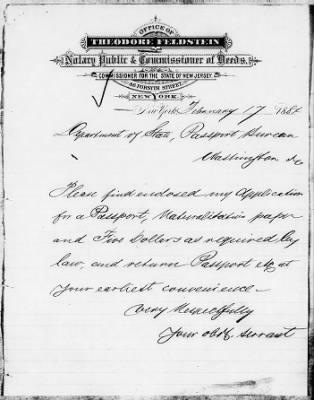 OFFICE OF
THEODORE FELDSTEIN
Notary Public & Commissioner of Deeds.
COMMISSIONER FOR THE STATE OF NEW JERSEY.
FORSYTH STREET,
NEW YORK.
New York, February 17 188
Department of State, Passport Bureau
Washington DC
Please find enclosed my Application
for a Passport, Naturalitation paper
and Five Dollars as required by
law, and return Passport etc at
your earliest convenience
Very Respectfully
Your obdt servant